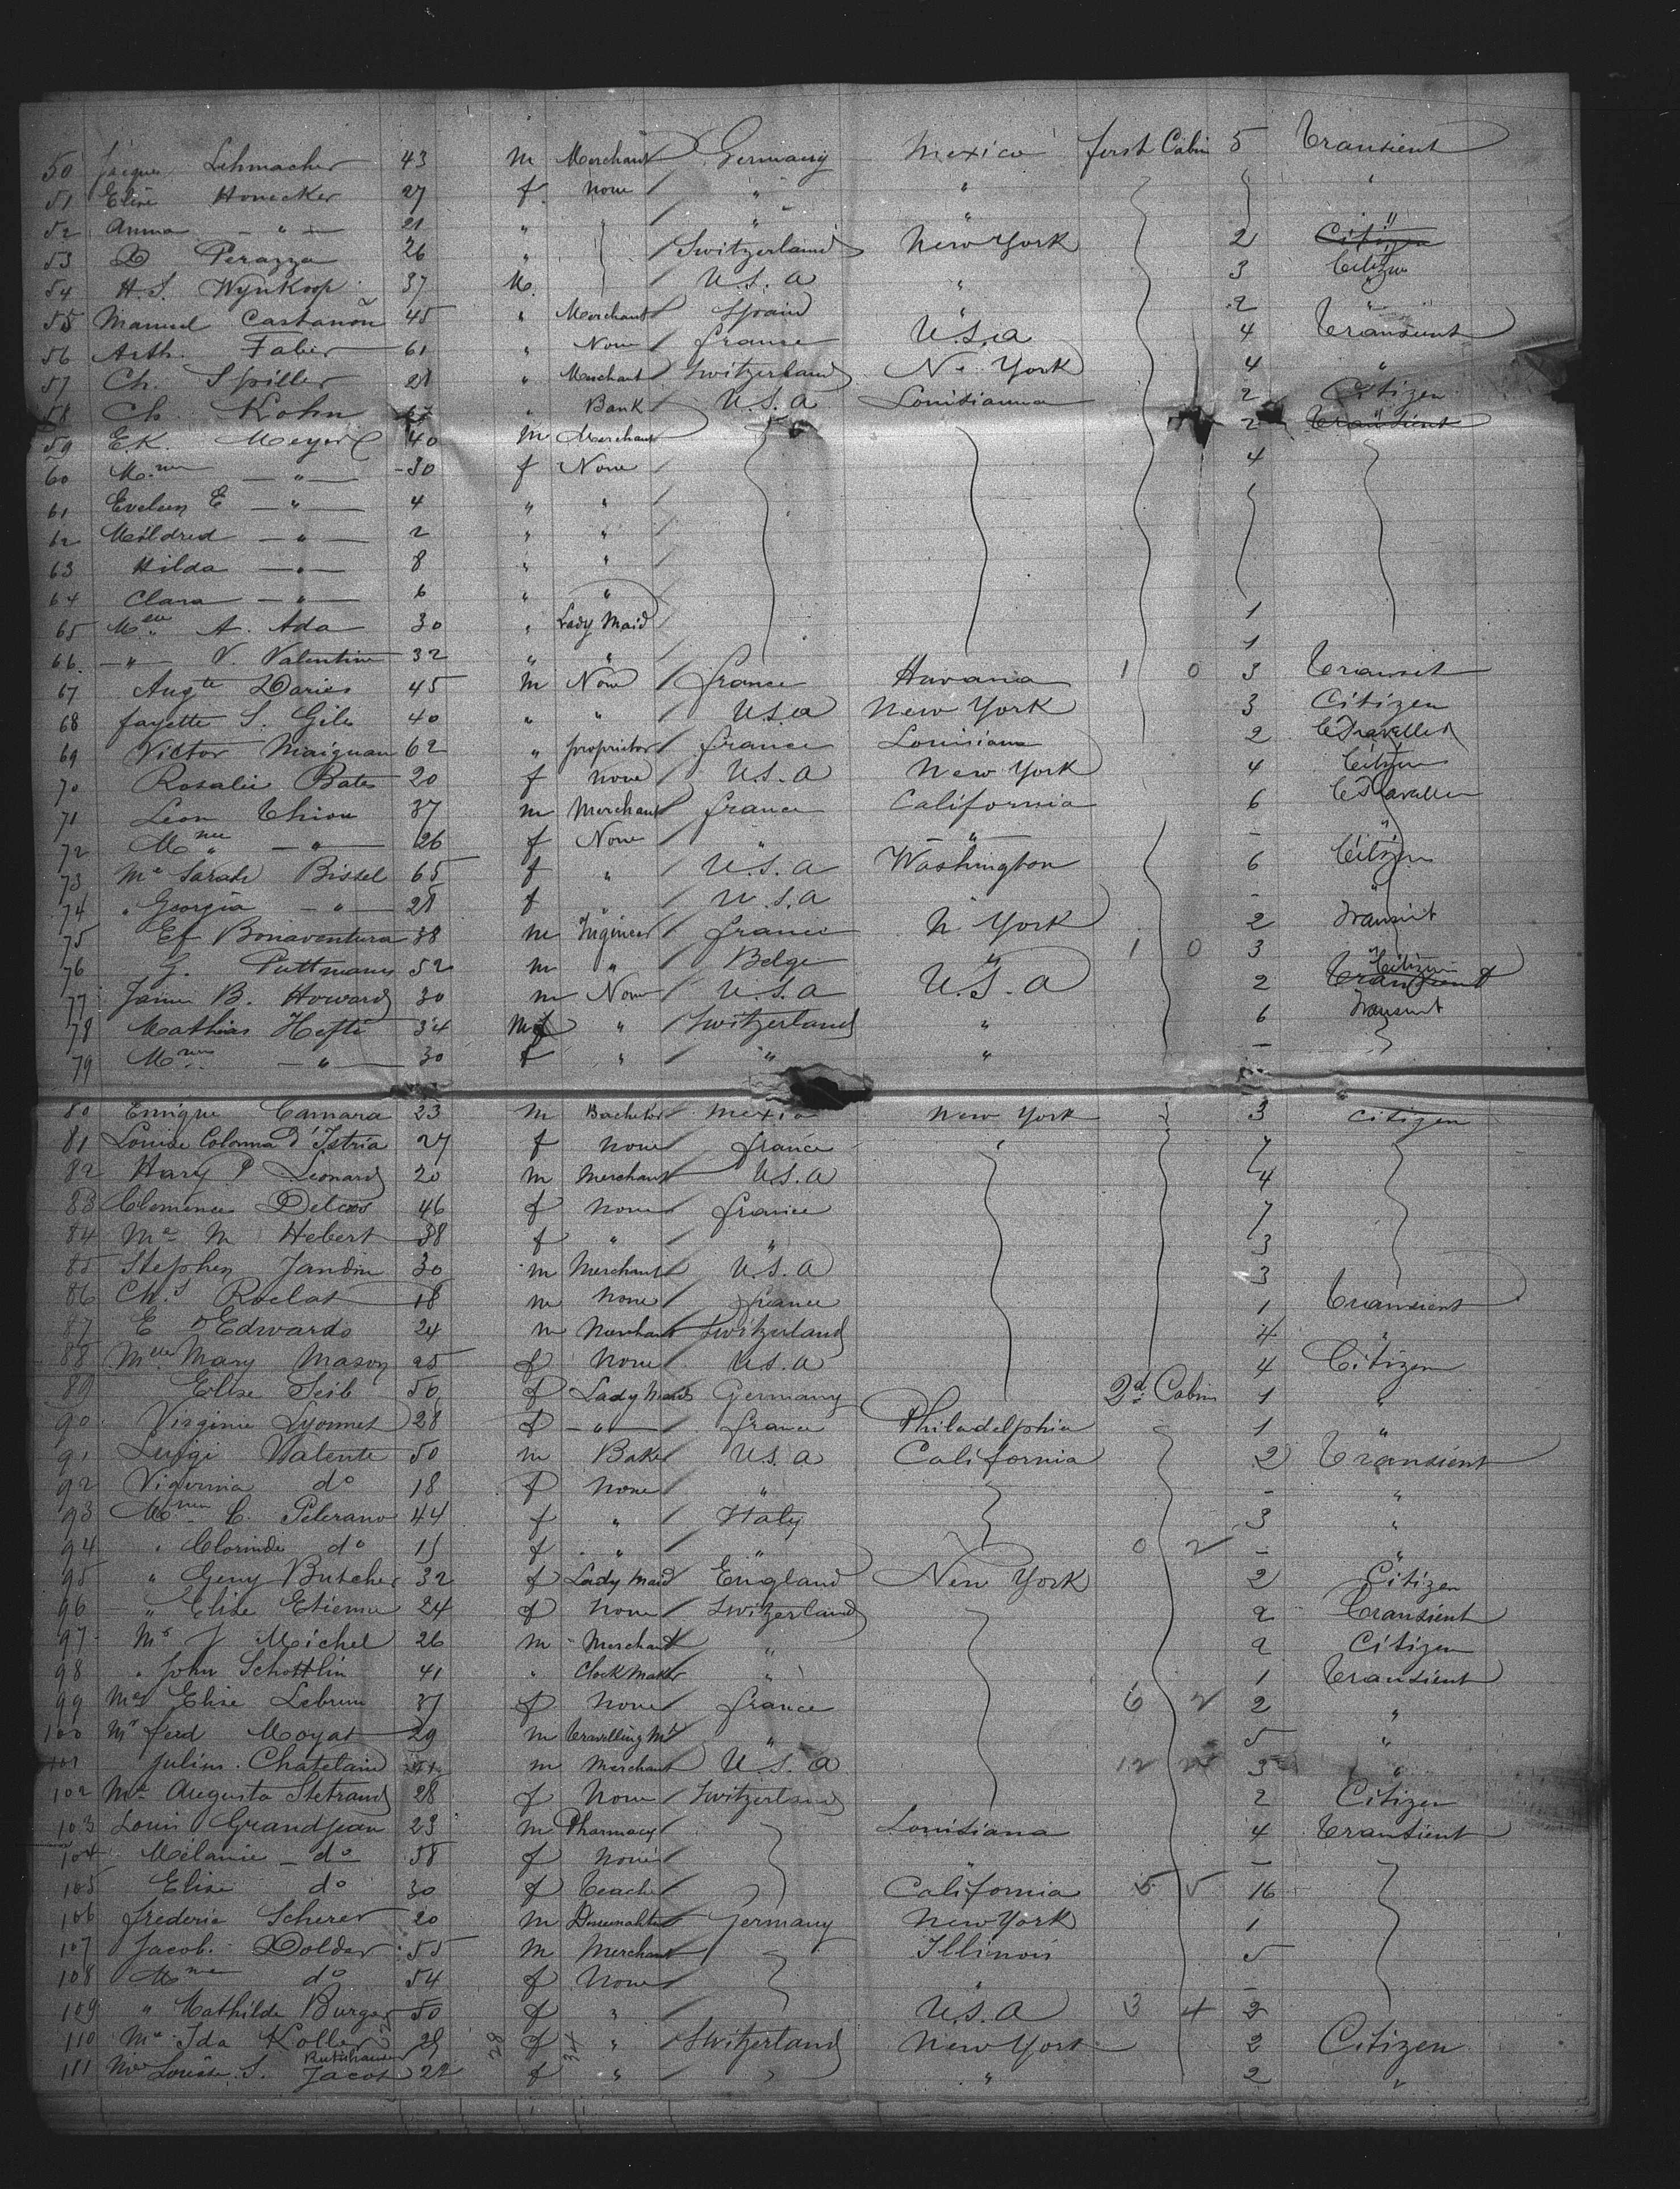 50 Jacques Lehmacher 43 m Merchant Germany Mexico first Cabin 5 Transient
51 Elise Honecker 27 f none " " "
52 Anna " 21 " " " " "
53 Perazza 26 " Switzerland New York 2 Citizen
54 H.S. Wynkoop 37 M. U.S.A " 3 Citizen
55 Manuel Castañon 45 " Merchant Spain " 2 "
56 Arth. Faber 61 " None france U.S.a 4 Transient
57 Ch. Spiller 28 " Merchant Switzerland N. York 4 "
58 Ch. Kohn " Bank U.S.A Louisianna 2 Citizen
59 E.K. Meyer 40 m Merchant 2 Transient
60 Mme " 30 f None 4
61 Eveleen E " 4 " "
62 Mildred " 2 " "
63 Hilda " 8 " "
64 Clara " 6 " "
65 Melle A. Ada 30 " Lady Maid 1
66 " V. Valentine 32 " " 1
67 Augte Daries 45 m None france Havana 1 0 3 Transit
68 fayette S. Giles 40 " " U.S.a New York 3 Citizen
69 Victor Maignan 62 " proprietor france Louisiana 2
70 Rosalie Bates 20 f none U.S.A New York 4 Citizen
71 Leon Thion 37 m Merchant france California 6
72 Mme " 26 f None " " - "
73 Me Sarah Bissel 65 f " U.S.a Washington 6 Citizen
74 " Georgia " 28 f " U.S.a - "
75 Ef Bonaventura 38 m Ingineer france N York 2 Transit
76 G. Puttmans 52 m " Belge " 1 0 3 "
77 James B. Howard 30 m None U.S.a U.S.a 2 Transient Citizen
78 Mathias Hefti 34 m " Switzerland " 6 Transit
79 Mme " 30 f " " " -
80 Enrique Camara 23 m Bachelor Mexico New York 3 citizen
81 Louise Colonna d'Istria 27 f none france " 7
82 Hary P Leonard 20 m Merchant U.S.a 4
83 Clemence Delcos 46 f none france 7
84 Me M Hebert 38 f " " 3
85 Stephen Jandin 30 m Merchant U.S.a 3
86 Chs Roclat 18 m none france 1 Transient
87 E Edwards 24 m Merchant Switzerland 4 "
88 Melle Mary Mason 25 f none U.S.a 4 Citizen
89 Elise Seib 50 f Lady Maid Germany 2d Cabin 1 "
90 Virginie Lyonnet 28 f " france Philadelphia 1 "
91 Luigi Valente 50 m Baker U.S.a California 2 Transient
92 do 18 f none " - "
93 Mme C. Pelerano 44 f " Italy 3 "
94 " Clorinde do 15 f " " 0 2 - "
95 " Geny Butcher 32 f Lady Maid England New York 2 Citizen
96 " Elise Etienne 24 f none Switzerland 2 Transient
97 Mr J Michel 26 m Merchant " 2 Citizen
98 " John Schottlin 41 " Clock Maker " 1 Transient
99 Mes Elise Lebrun 37 f none france 6 2 2 "
100 Mr fred Moyat 29 m travelling Mt " 5 "
101 Julius Chatelain m Merchant U.S.a 12 3 "
102 Me Augusta Stetrand 28 f None Switzerland 2 Citizen
103 Louis Grandjean 23 m Pharmacy Louisiana 4 Transient
104 Mélanie do 58 f none " -
105 Elise do 30 f Teacher California 5 5 16
106 frederic Scherer 20 m Germany New York 1
107 Jacob Dolder 55 m Merchant Illinois 5
108 Mme do 54 f None " -
109 " Mathilde Burger 50 f " U.S.A 3 4 2
110 Me Ida Koller 29 28 f 34 " Switzerland New York 2 Citizen
111 Me Louise S. Jacot 22 f " " " 2 "